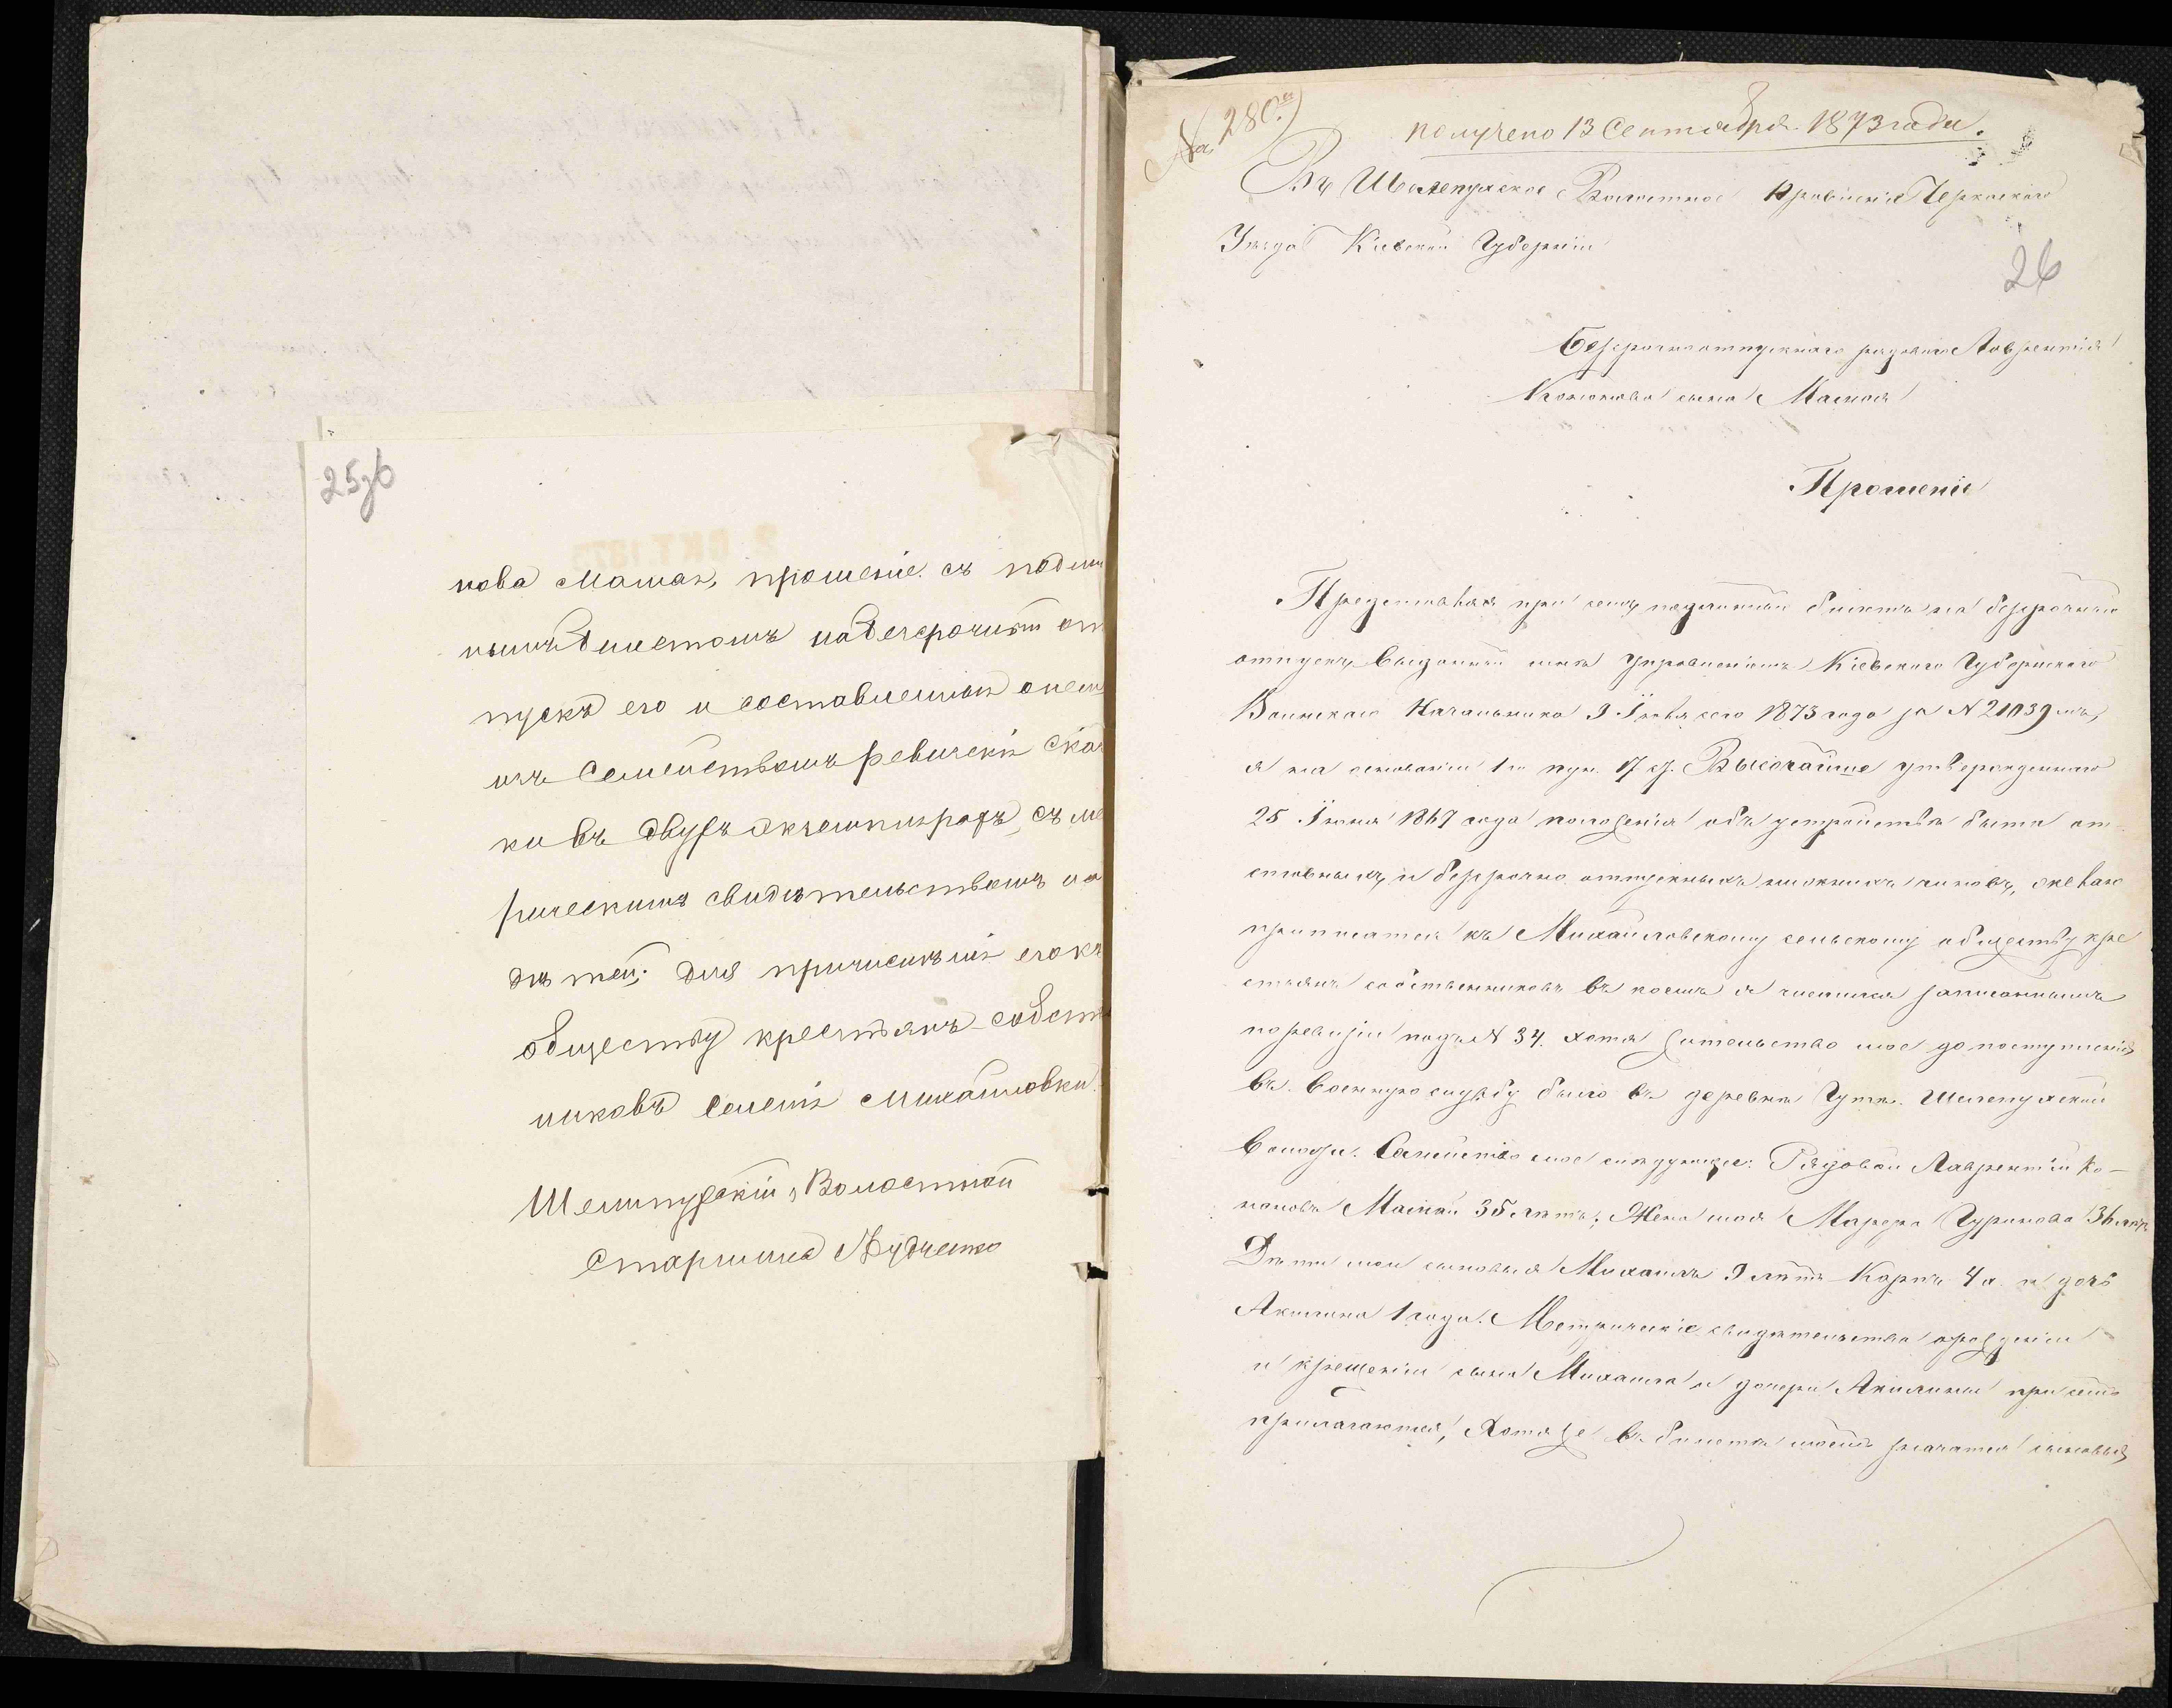 25зв
нова Маман, прошеніе съ подлин
нымъ билетомъ на безсрочный от
пускъ его и составленныя о нем
изъ Семействомъ ревизскія сказ
ки въ двухъ экземплярахъ, съ ме
рическимъ свидѣтельствомъ на
дѣтей; для причисленія его къ
обществу крестьянъ-собств
никовъ селенія Михайловки.
Шелипухскій, Волостной
Старшина
№ 280.
получено 13 Сентября 1873 года.
Въ Шелепухское Волостное Правленіе Черкаскаго
Уѣзда Кіевской Губерніи
26
Безсрочноотпускнаго рядоваго Лаврентія
Кононова сына
Прошеніе
Представляя при семъ подлинный билетъ на безсрочный
отпускъ, выданный мнѣ Управленіемъ Кіевскаго Губернскаго
Воинскаго Начальника 9 сего 1873 года за № 21039 мъ,
я на основаніи 1го пун. 17 ст. Высочайше утвержденнаго
25 Іюня 1867 года положенія объ устройствѣ быта от
ставныхъ и безсрочно отпускныхъ нижнихъ чиновъ, желаю
приписатся къ Михайловскому сельскому обществу кре
стьянъ собственниковъ въ коемъ я числился записаннымъ
по ревизіи подъ № 34. хотя жительство мое до поступленія
въ военную службу было въ деревнѣ Гутѣ Шелепухской
волости. Семейство мое слѣдующее: Рядовой Лаврентій Ко-
ноновъ 35 лѣтъ; Жена моя Гуринова 36 лѣтъ
Дѣти мои сыновья Михаилъ 9 лѣтъ Карпъ 4 х и дочь
Акилина 1 года. Метрическіе свидѣтельства о рожденіи
и крещеніи сына Михаила и дочери Акилины при семъ
прилагаются, Хотя же въ билетѣ моемъ значатся сыновья